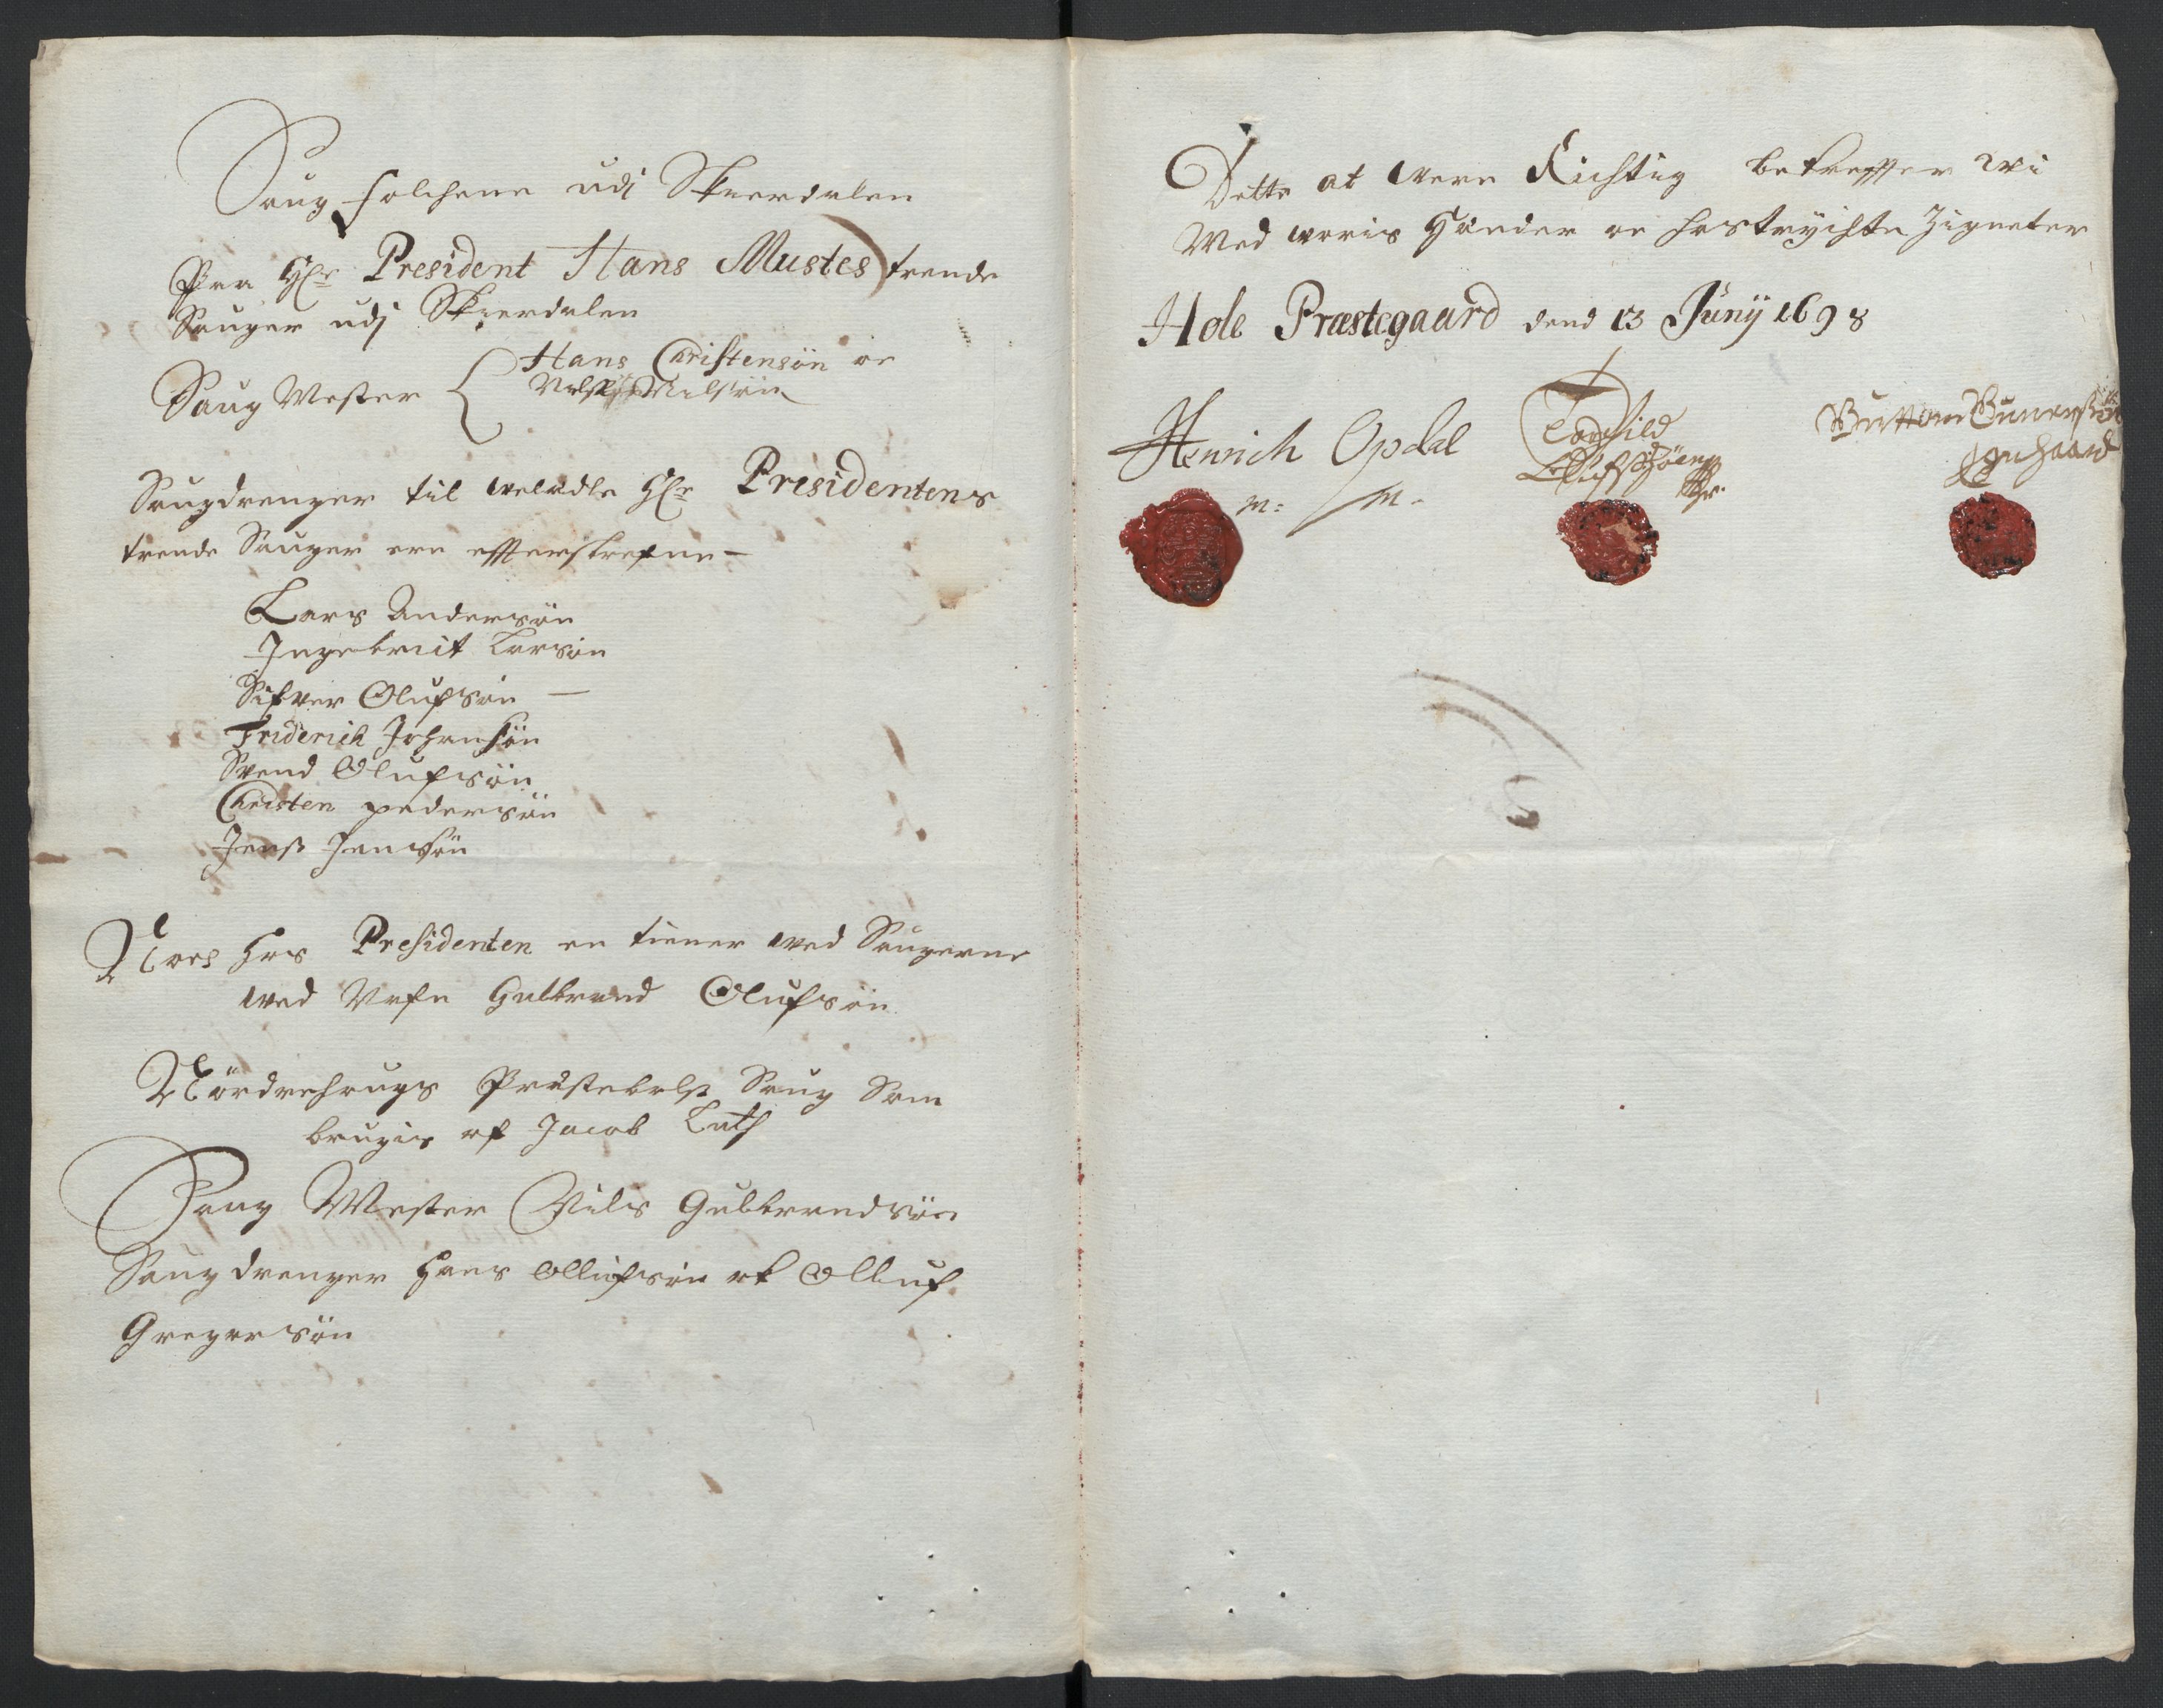 Saug folchene udj Skierdalen
Paa Hr President Hans Mustes trende
Sauger udj Skierdalen
Saug Mester { Hans Christensön oc
Nilsön
Saugdrenger til welædle Hr Presidentens
trende Sauger ere effterskrefne –
Lars Andersön
Ingebrict Larsön
Sifver Olufsön –
Friderich Johansön
Svend Olufsön
Christen pedersön
Jenß Jensön
Noch hos Presidenten en tiener wed Saugerne
wed Nafn Gulbrand Olufsön
Nördrehougs Præstebols Saug Som
brugis af Jacob Luth
Saug Mester Nils Gulbrandsön
Saug drenger Hans Ollufsön ok Olluf
Gregersön
Dette at were Richtig bekreffter wi
Med woris Hænder oc hostrychte Zigneter
Hole Præstegaard dend 13 Junij 1698
Henrich Opdal
Torchild
m: m.
Guttorm Gunersön
Egenhaand